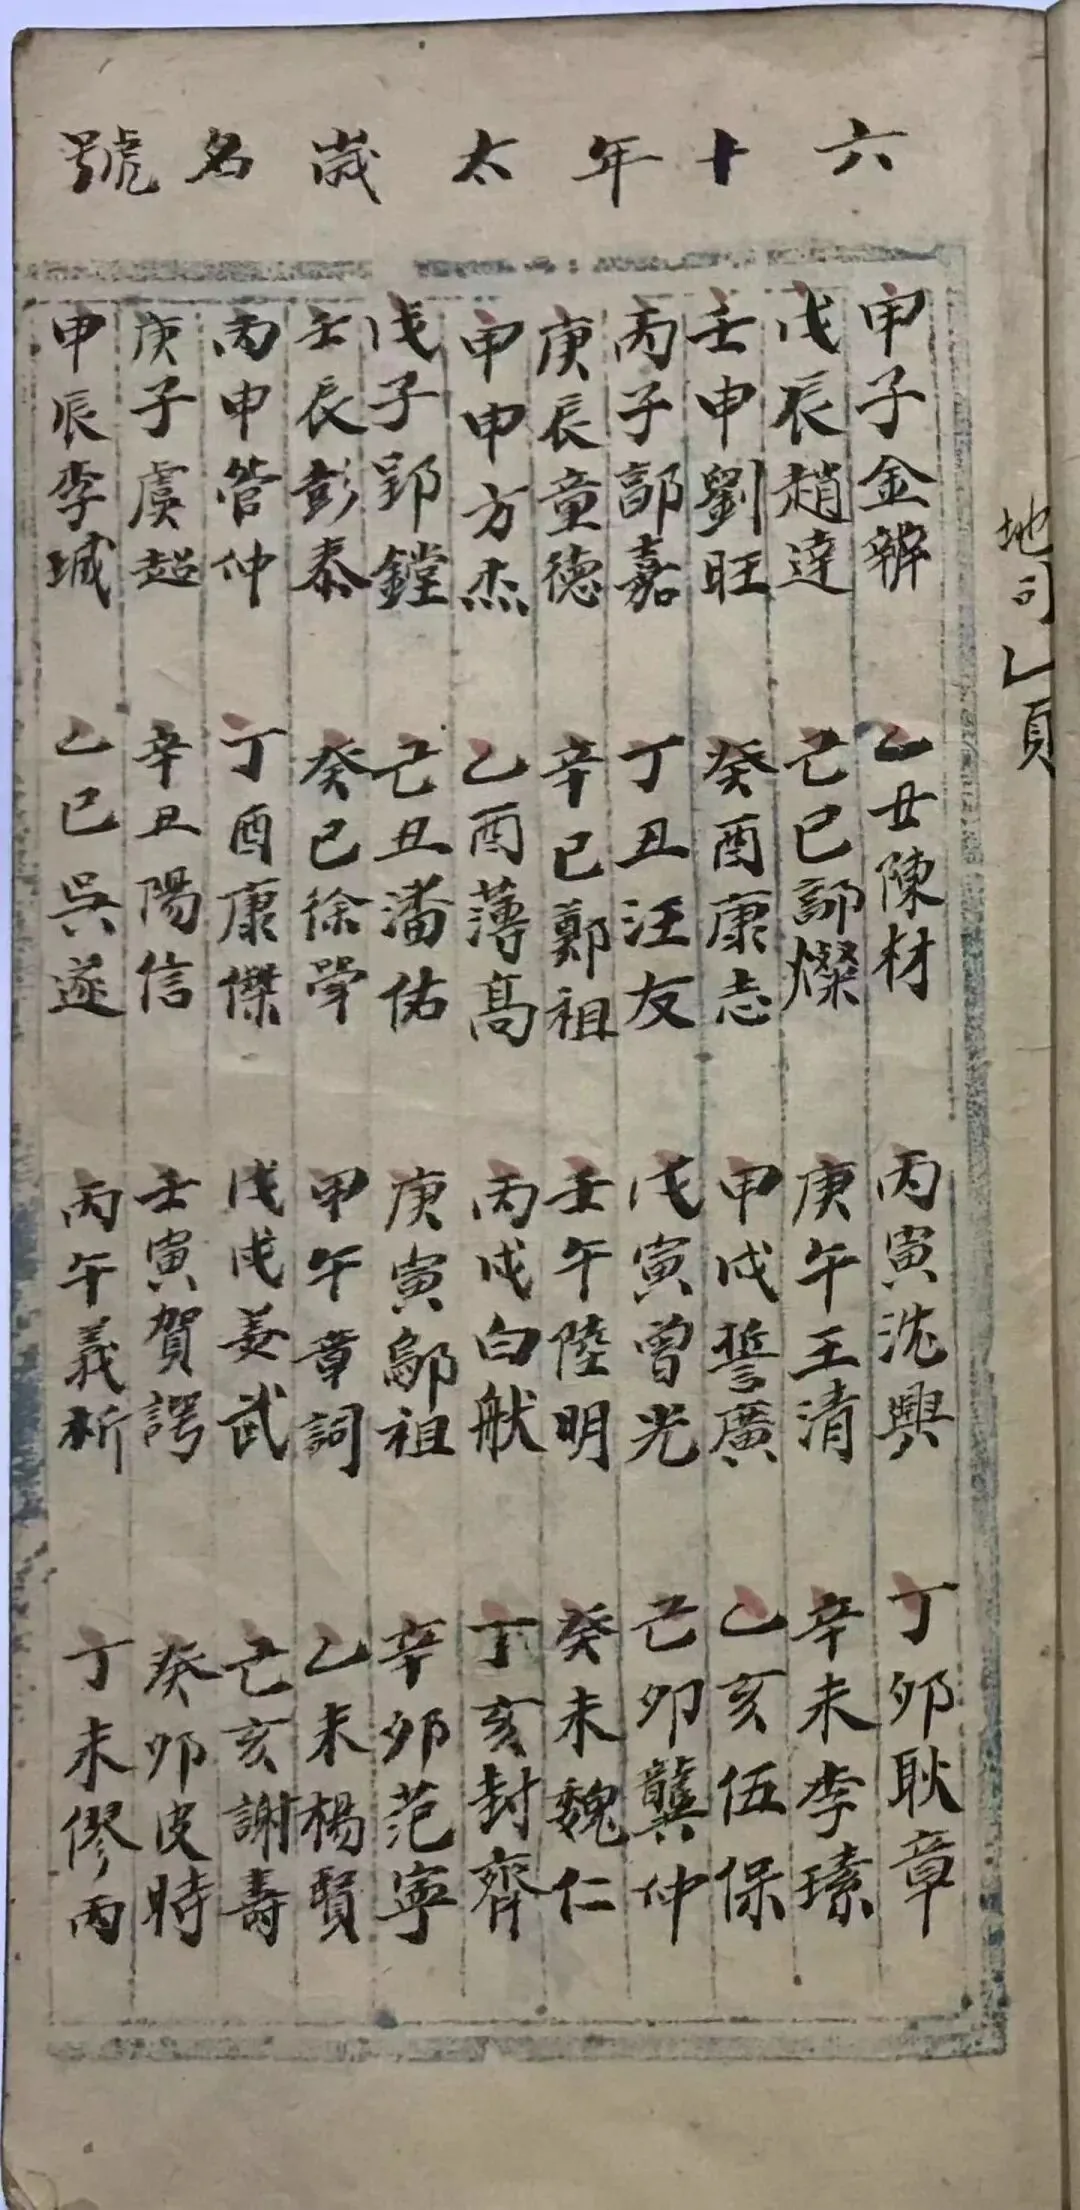 六十年太歲名號
甲子金辦 乙丑陳材 丙寅沈興 丁卯耿章
戊辰趙達 己巳郭燦 庚午王清 辛未李瑧
壬申劉旺 癸酉康志 甲戌誓廣 乙亥伍保
丙子郭嘉 丁丑汪友 戊寅曾光 己卯龔仲
庚辰童德 辛巳鄭祖 壬午陸明 癸未魏仁
甲申方杰 乙酉薄高 丙戌白猷 丁亥封齊
戊子郢鏜 己丑潘佑 庚寅鄔祖 辛卯范寧
壬辰彭泰 癸巳徐學 甲午章詞 乙未楊賢
丙申管仲 丁酉康傑 戊戌姜武 己亥謝壽
庚子虞超 辛丑陽信 壬寅賀諤 癸卯皮時
甲辰李城 乙巳吳遂 丙午義析 丁未僇丙
地司乙頁